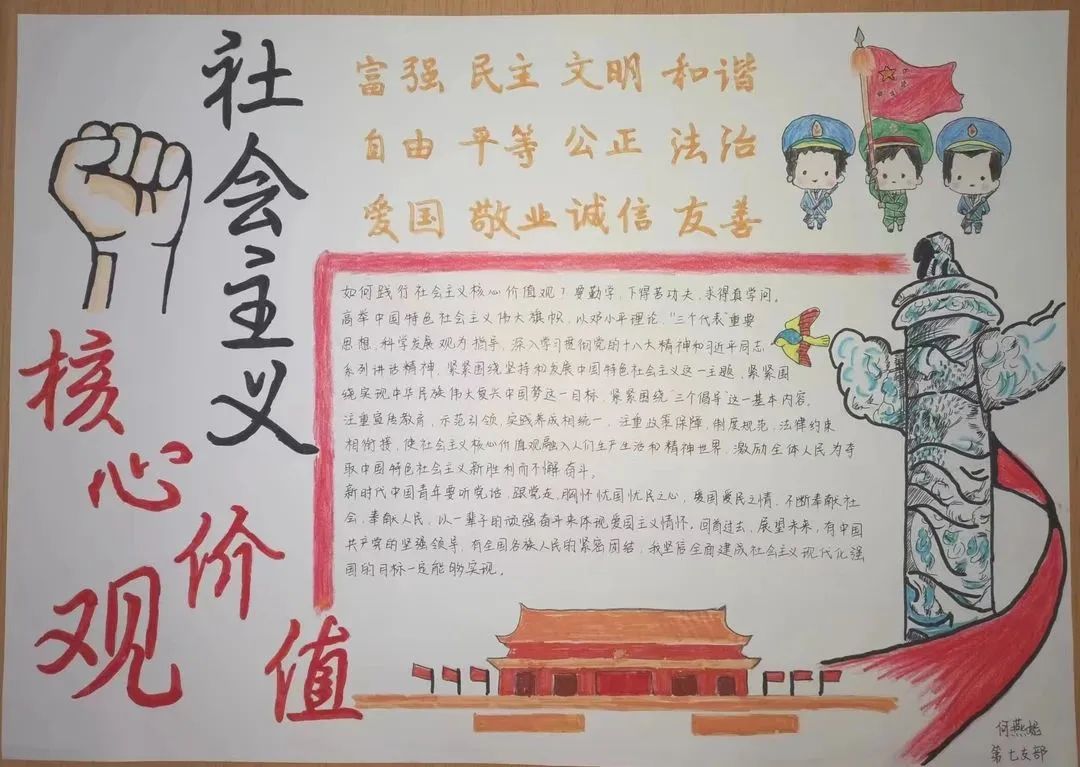 社会主义
核心价值观
富强 民主 文明 和谐
自由 平等 公正 法治
爱国 敬业 诚信 友善
如何践行社会主义核心价值观？要勤学，下得苦功夫，求得真学问。
高举中国特色社会主义伟大旗帜，以邓小平理论，“三个代表”重要
思想，科学发展观为指导，深入学习贯彻党的十八大精神和习近平同志
系列讲话精神，紧紧围绕坚持和发展中国特色社会主义这一主题，紧紧围
绕实现中华民族伟大复兴中国梦这一目标，紧紧围绕“三个倡导”这一基本内容，
注重宣传教育，示范引领，实践养成相统一，注重政策保障，制度规范，法律约束
相衔接，使社会主义核心价值观融入人们生产生活和精神世界，激励全体人民为夺
取中国特色社会主义新胜利而不懈奋斗。
新时代中国青年要听党话，跟党走，胸怀忧国忧民之心，爱国爱民之情，不断奉献社
会，奉献人民，以一辈子的顽强奋斗来体现爱国主义情怀。回首过去，展望未来，有中国
共产党的坚强领导，有全国各族人民的紧密团结，我坚信全面建成社会主义现代化强
国的目标一定能够实现。
何燕
第七支部